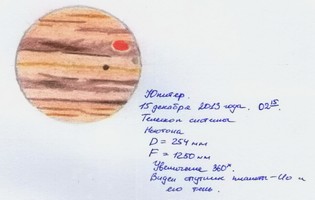 Юпитер.
15 декабря 2013 года. 02¹⁵.
Телескоп системы
Ньютона
D = 254 мм
F = 1250 мм
Увеличение 360ˣ.
Виден спутник планеты - Ио и
его тень.